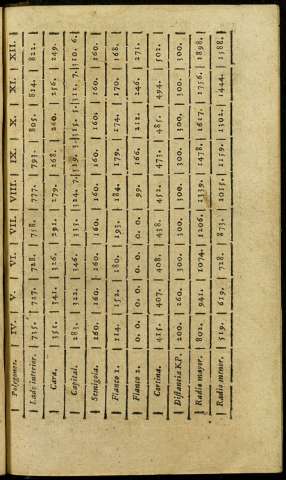 Polygonos. | IV. | V. | VI. | VII. | VIII. | IX. | X. | XI. | XII.
Lado interior. | 735. | 727. | 728. | 758. | 777. | 793. | 805. | 814. | 822.
Cara. | 351. | 341. | 326. | 292. | 279. | 268. | 260. | 256. | 249.
Capital. | 283. | 322. | 346. | 333. | 324. 7. | 319. 3. | 315. 5. | 312. 7. | 310. 6.
Semigola. | 160. | 160. | 160. | 160. | 160. | 160. | 160. | 160. | 160.
Flanco 1. | 114. | 152. | 180. | 193. | 184. | 179. | 174. | 170. | 168.
Flanco 2. | 0. 0. | 0. 0. | 0. 0. | 0. 0. | 99. | 166. | 212. | 246. | 271.
Cortina. | 415. | 407. | 408. | 438. | 452. | 473. | 485. | 494. | 502.
Distancia KP. | 200. | 260. | 300. | 300. | 300. | 300. | 300. | 300. | 300.
Radio mayor. | 802. | 941. | 1074. | 1206. | 1339. | 1478. | 1617. | 1756. | 1898.
Radio menor. | 519. | 619. | 728. | 873. | 1015. | 1159. | 1302. | 1444. | 1588.